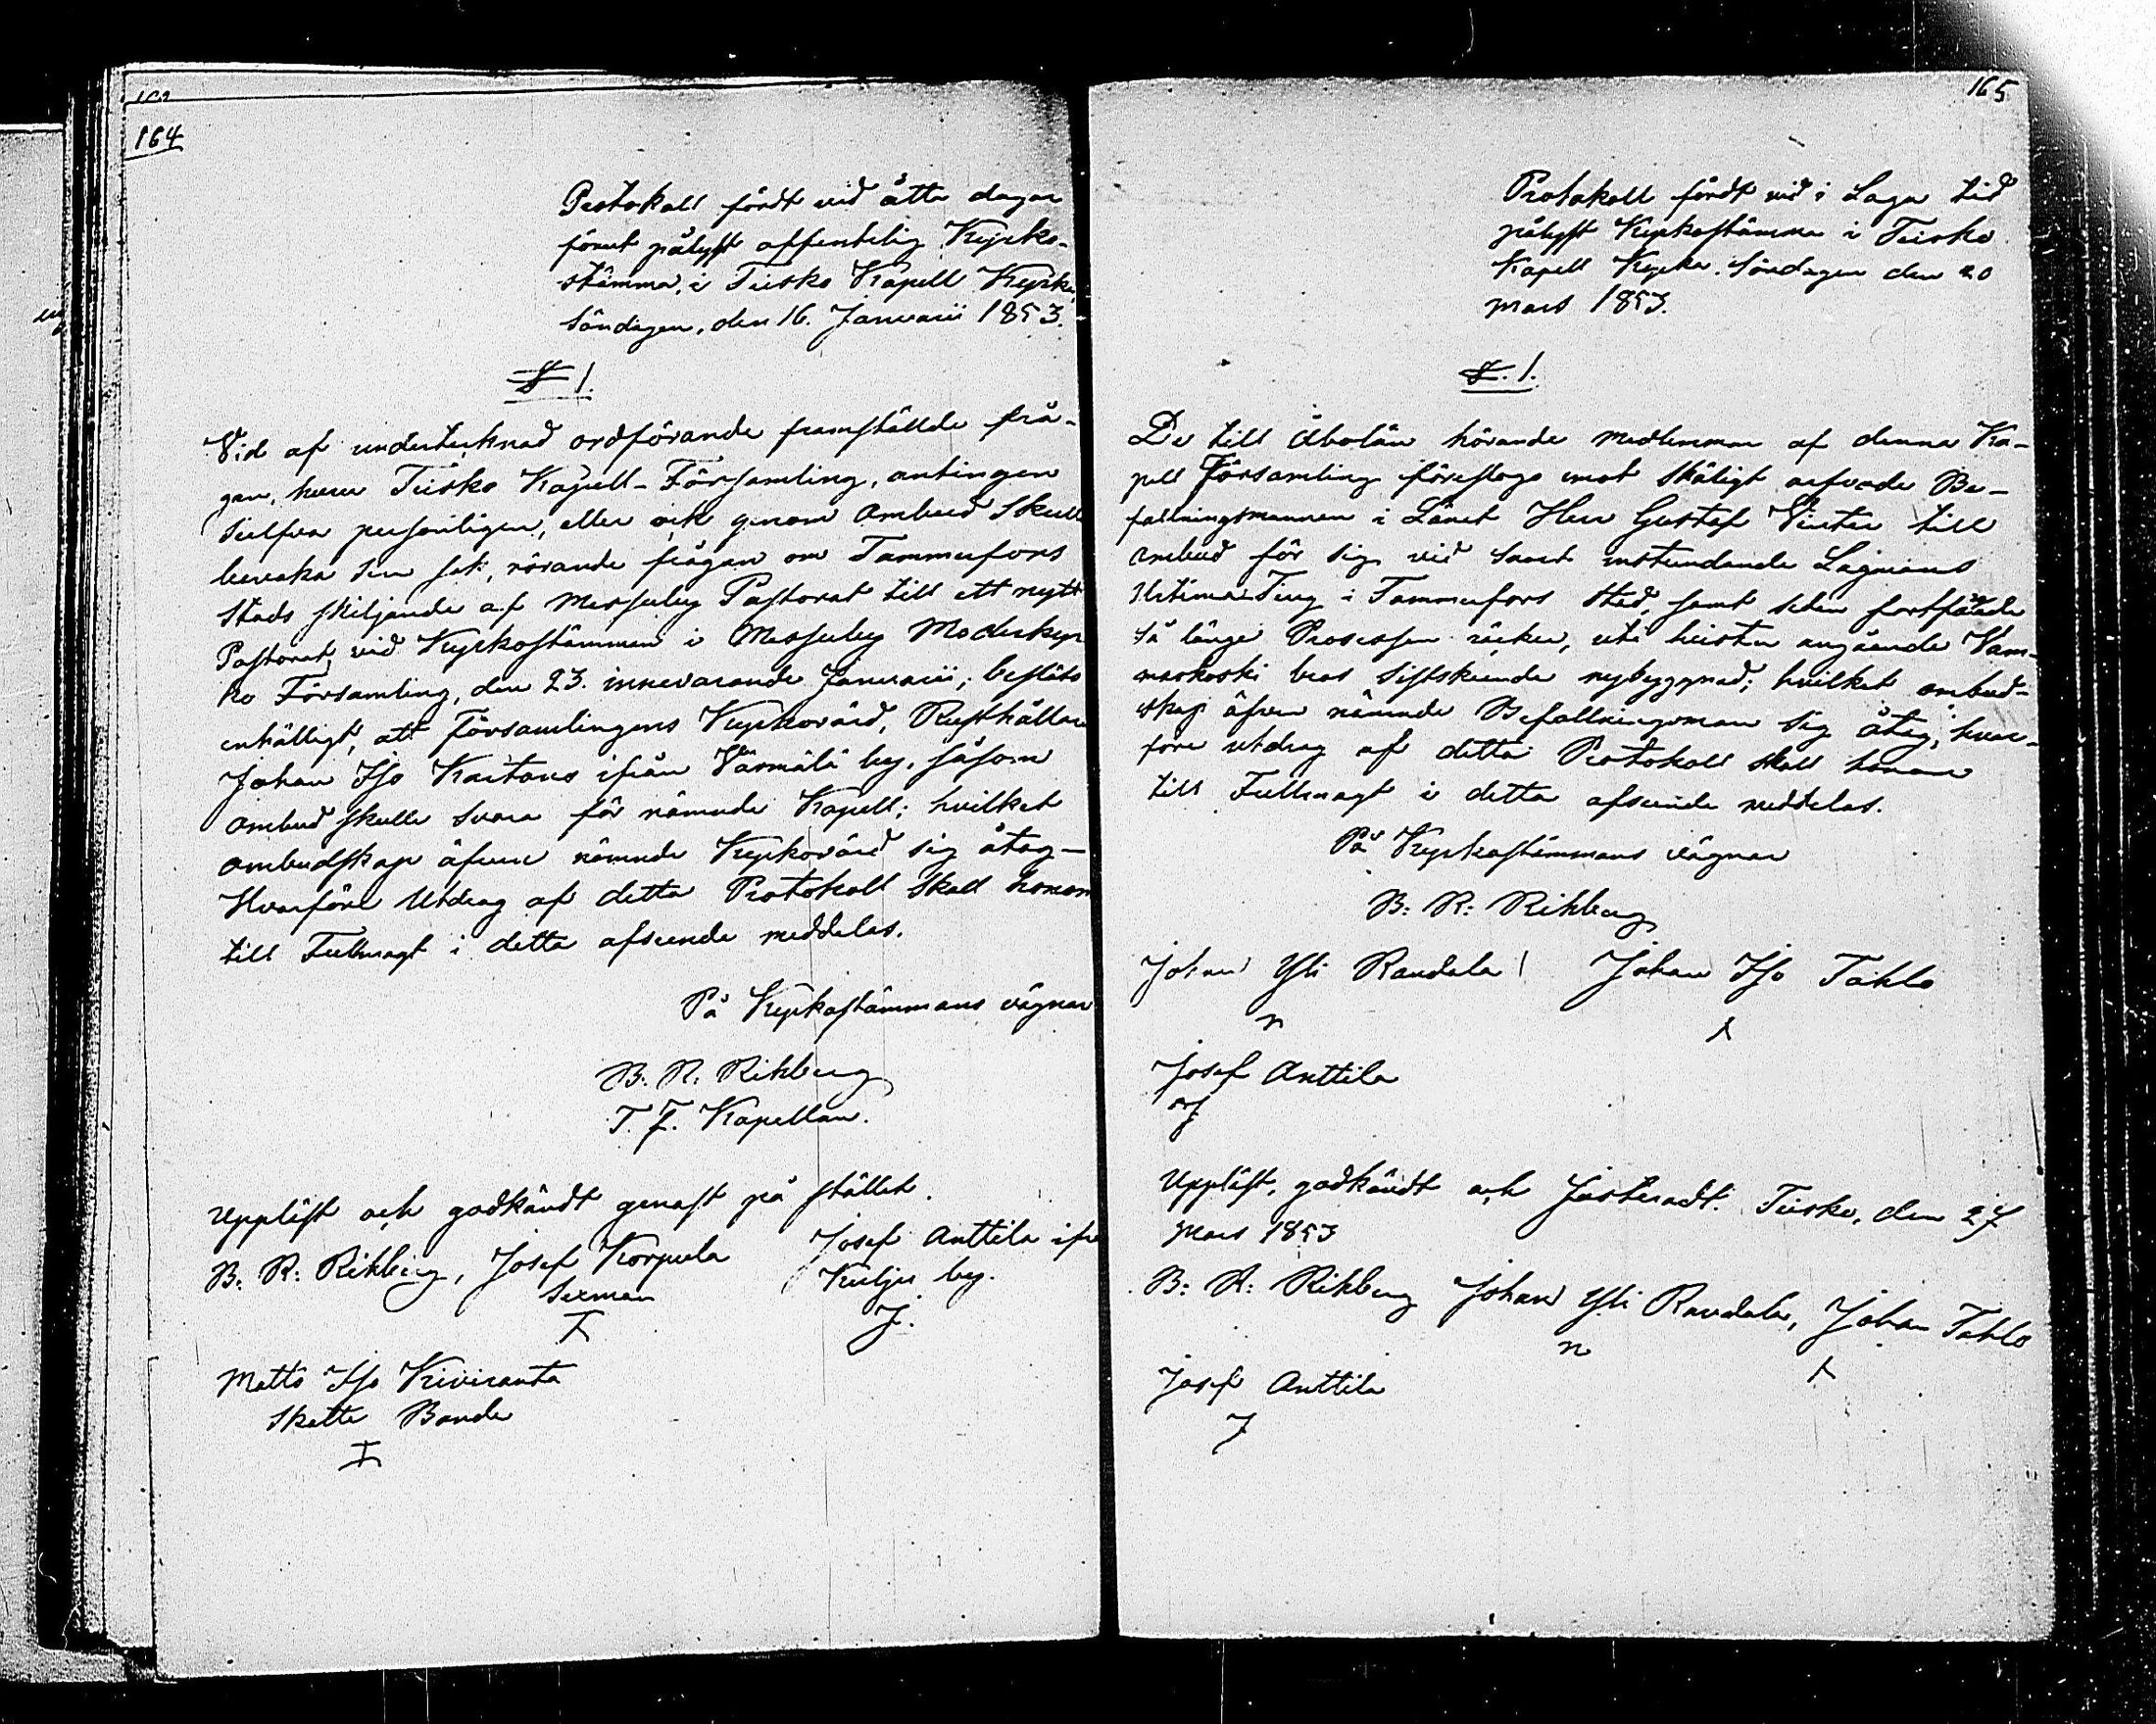 164
Protokoll fördt vid åtta dagar
förut pålyst offentelig Kyrko-
stämma, i Teisko Kapell Kyrka
Söndagen, den 16. Januarii 1853.
§ 1.
Vid af undertecknad ordförande framstälde frå-
gan, huru Teisko Kapell-Församling, antingen
sielfva personligen, eller ock genom Ombud skull
bevaka sin sak, rörande frågan om Tammerfors
Stads skiljande af Messuby Pastorat till ett nytt
Pastorat, vid Kyrkostämman i Messuby Moderkyr
ko Församling, den 23. innevarande Januarii; beslöts
enhälligt, att Församlingens Kyrkovärd, Rusthållaren
Johan Iso Kartano ifrån Värmälä by, såsom
ombud skulle svara för nämnde Kapell; hvilket
ombudskap äfven nämnde Kyrkovärd sig åtog—
Hvarföre Utdrag af detta Protokoll skall honom
till Fullmagt i detta afseende meddelas.
På Kyrkostämmans vägnar
B. R. Rihberg
T. F. Kapellan.
Uppläst och godkändt genast på stället.
B. R: Rihberg, Josef Korpula Josef Anttila ifr
Sexman Kulju by.
J.
Matts Iso Kiviranta
Skatte Bonde
165
Protokoll fördt vid i Laga tid
pålyst Kyrkostämma i Teisko
Kapell Kyrka. Söndagen den 20
Mars 1853.
§. 1.
De till Åbolän hörande medlemmar af denna Ka-
pell Församling föreslogo emot skäligt arfvode Be-
fallningsmannen i Länet Herr Gustaf Winter till
ombud för sig vid snart instundande Lagmans
Urtima Ting i Tammerfors stad, samt seden fortsätta
så länge Processen räcker, uti tvisten angående Vam-
maskoski bros sistskeende nybyggnad; hvilket ombud-
skap äfven nämnde Befallningsman sig åtog; hvar-
före utdrag af detta Protokoll skall honom
till Fullmagt i detta afseende meddelas.
På Kyrkostämmans vägnar
B: R: Rihberg
Johan Yli Randala Johan Iso Tahlo
n
Josef Anttila
J
Uppläst, godkändt och Justeradt. Teisko, den 27
Mars 1853
B: R: Rihberg Johan Yli Randala, Johan Tahlo
n
Josef Anttila
J